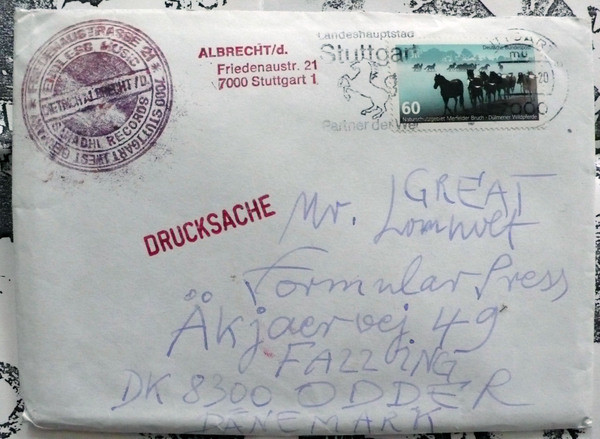 FRIEDENAUSTRASSE 21
7000 STUTTGART
WEST GERMANY
ENDLESS MUSIC
DIETRICH ALBRECHT/D.
RECORDS
ALBRECHT/d.
Friedenaustr. 21
7000 Stuttgart 1
Landeshauptstad
Stuttgart
Partner der Wel
Deutsche Bundespost
60
Naturschutzgebiet Merfelder Bruch · Dülmener Wildpferde
DRUCKSACHE
GREAT
Mr. Lomholt
Formular Press
Åkjaervej 49
FALLING
DK 8300 ODDER
DÄNEMARK